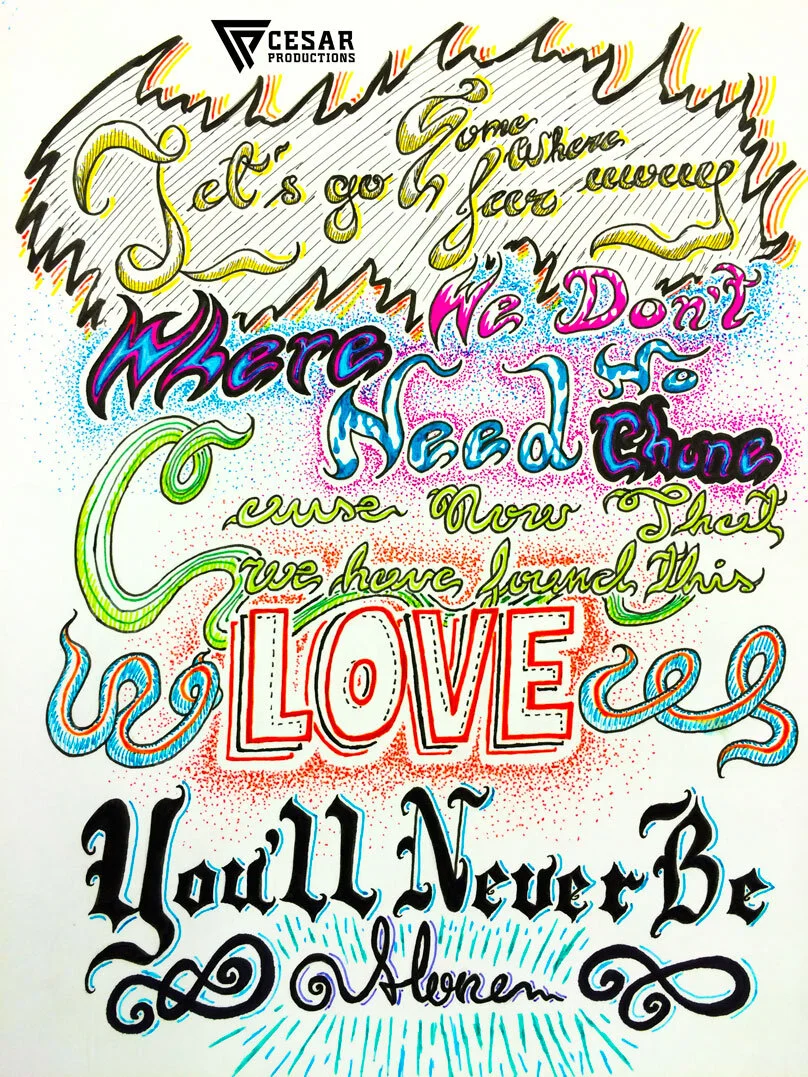 CESAR
PRODUCTIONS
Let's go Some Where
far away
Where We Don't
Need No
Phone
Cause Now That
we have found this
LOVE
You'll Never Be
Alone